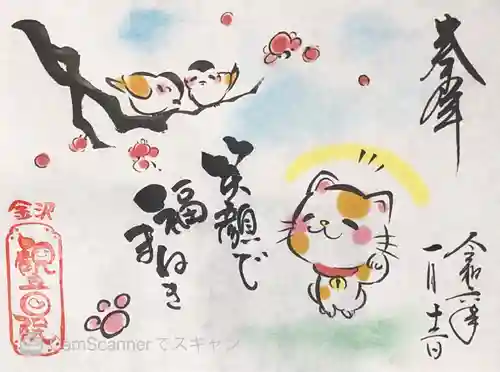 奉拝
令和六年
一月十一日
笑顔で
福まねき
金沢
観音院
CamScannerでスキャン